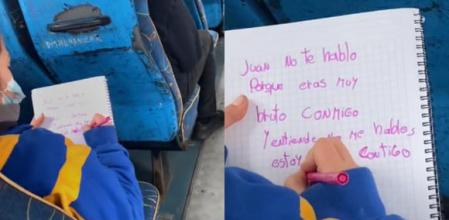 Juan No te hablo
Porque eras muy
bruto CONMIGO
Y entiende No me hables
estoy CONTIGO